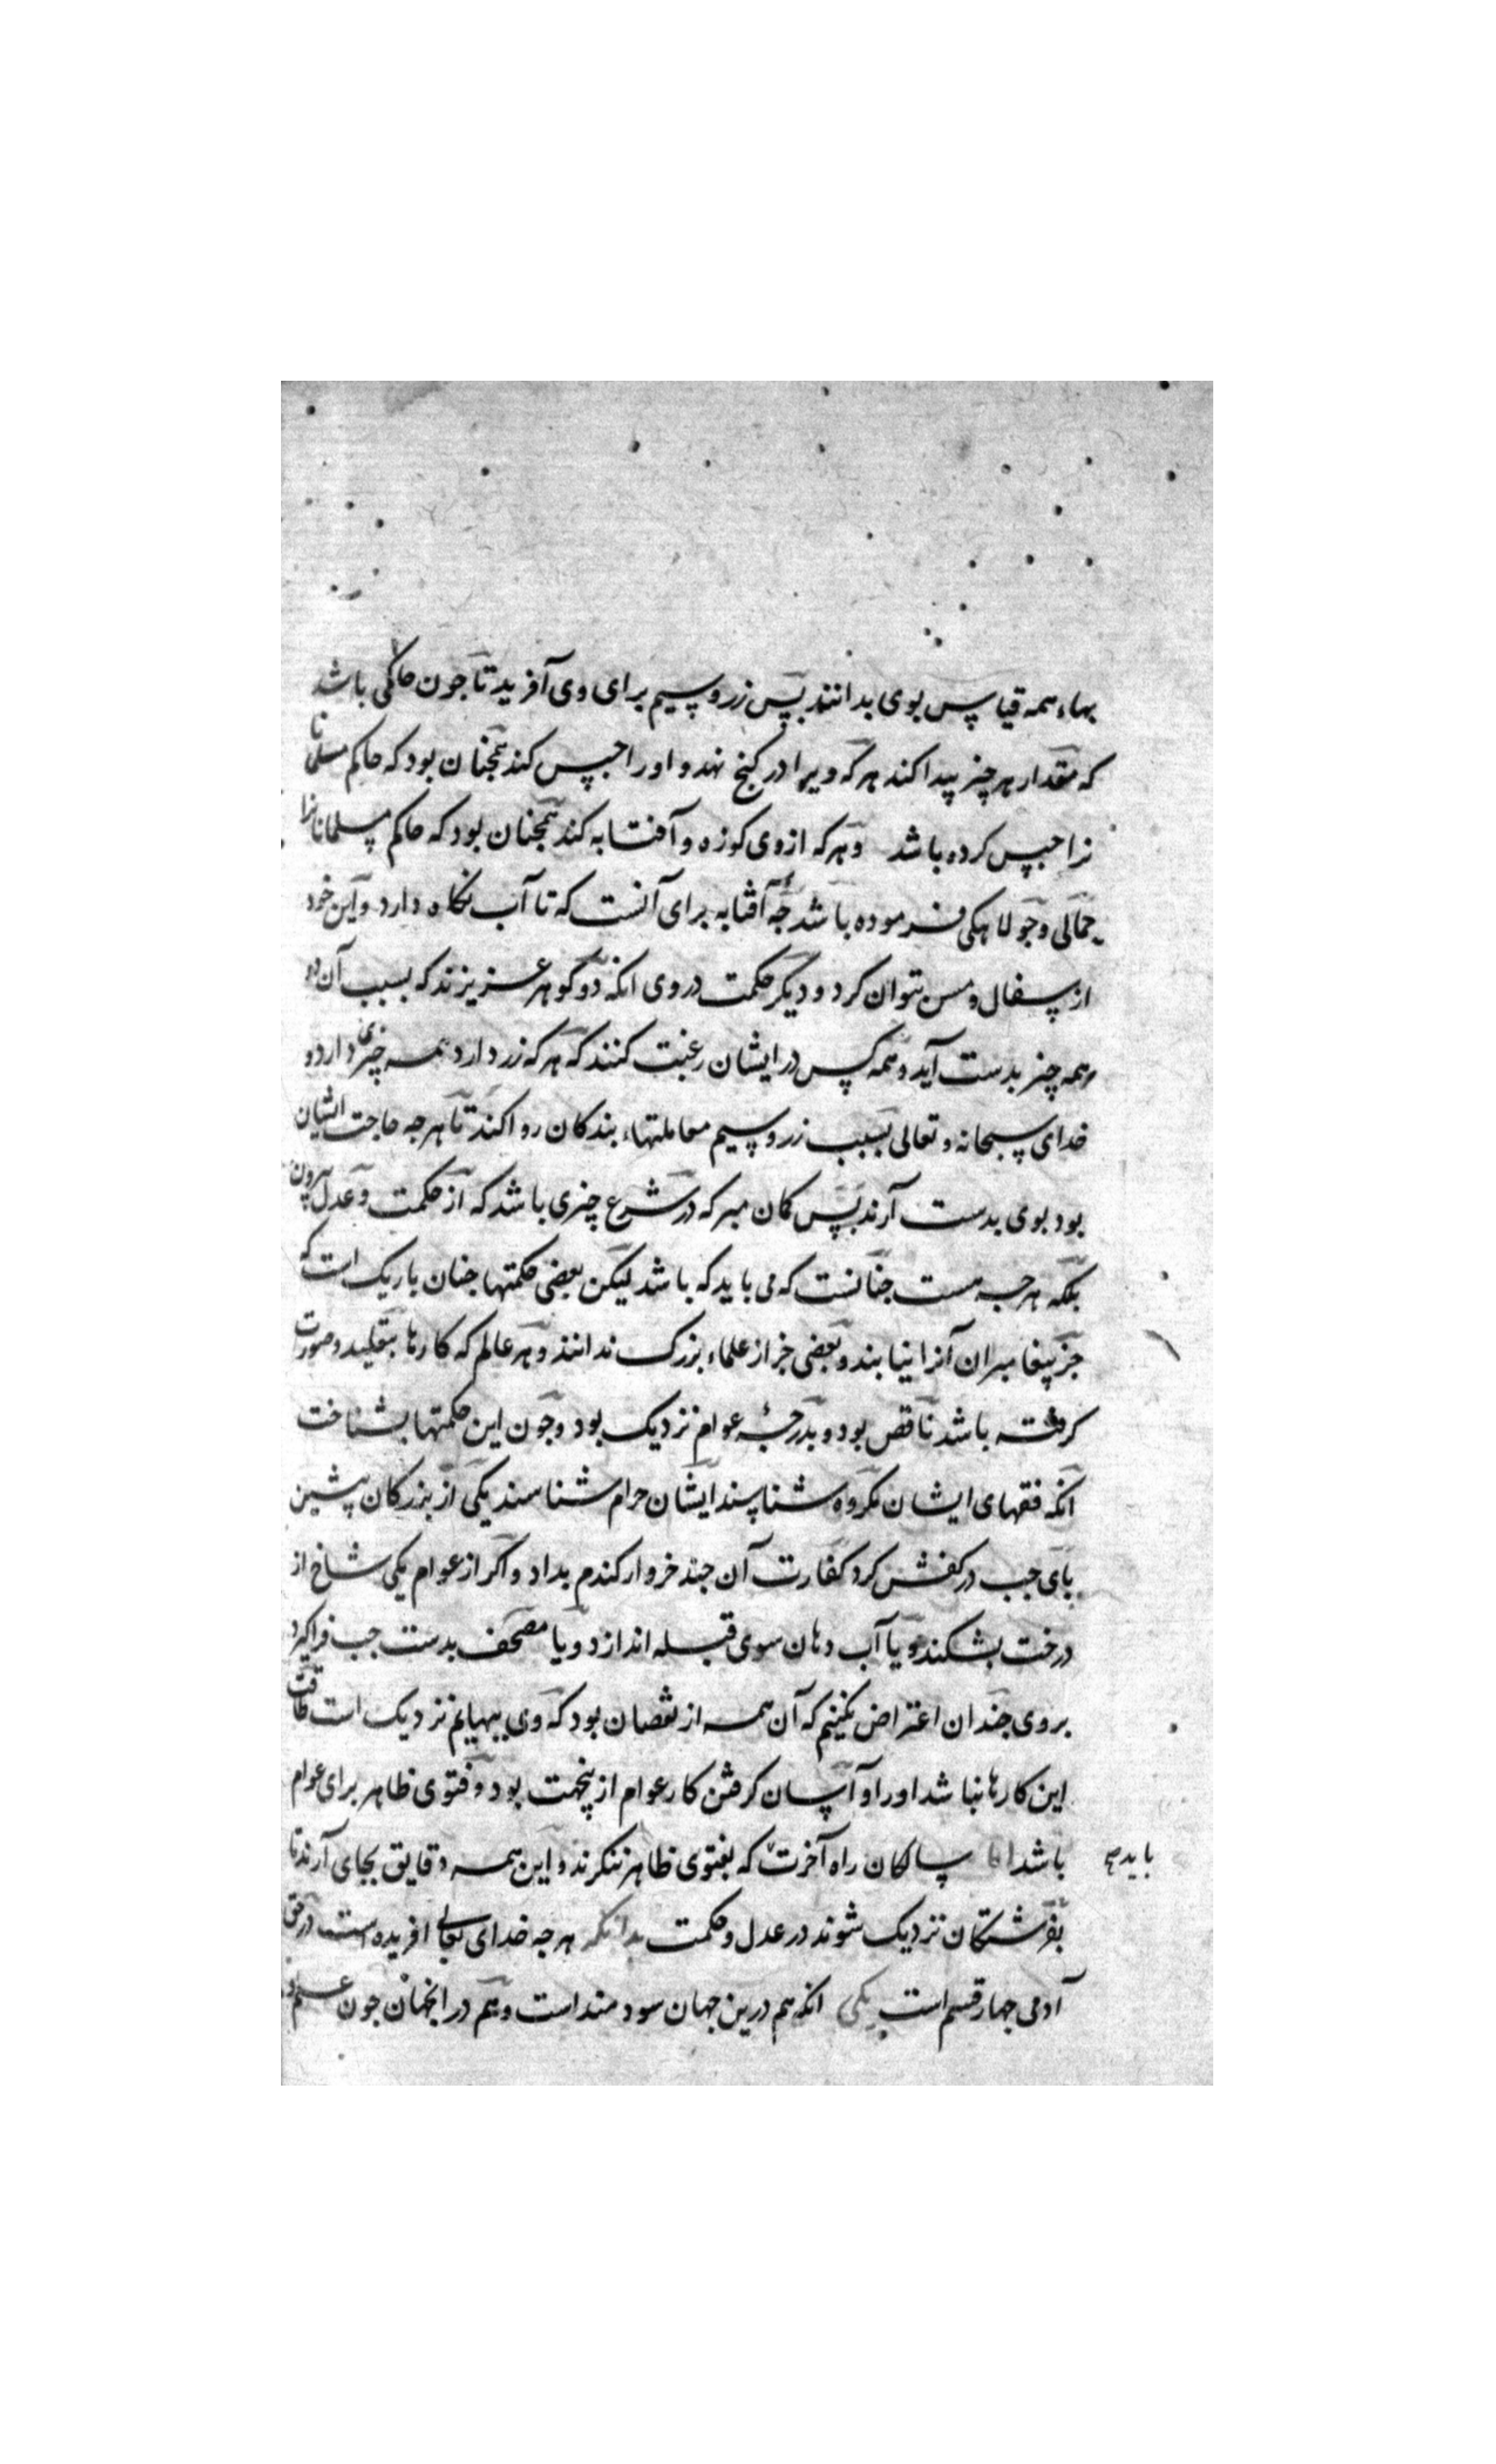 بهاء همه قیاس بوی بدانند پس زر و سیم برای وی آفرید تا جون حاکمی باشد
که مقدار هر چیز پیدا کند هر که ویرا در کنج نهد و او را حبس کند همجنان بود که حاکم مسلمانا
نرا حبس کرده باشد وهر که ازوی کوزه و آفتابه کند همجنان بود که حاکم مسلمانانرا
حمالی و جولاهکی فرموده باشد جه آفتابه برای آنست که تا آب نکاه دارد و این خود
از سفال و مس توان کرد و دیکر حکمت در وی انکه دو کوهر عزیزند که بسبب آن دو
همه چیز بدست آید و همه کس در ایشان رغبت کنند که هر که زر دارد همه چیزی دارد و
خدای سبحانه و تعالی بسبب زر و سیم معاملتهاء بندکان روا کند تا هرجه حاجت ایشان
بود بوی بدست آرند پس کمان مبر که در شرع چیزی باشد که از حکمت و عدل بیرون
بلکه هرجه هست جنانست که می باید که باشد لیکن بعضی حکمتها جنان باریک است که
جز پیغامبران آنرا نیابند و بعضی جز از علماء بزرک ندانند و هر عالم که کارها بتقلید و صورت
کرفته باشد ناقص بود و بدرجۀ عوام نزدیک بود و جون این حکمتها بشناخت
انکه فقهای ایشان مکروه شناسند ایشان حرام شناسند یکی از بزرکان پیشین
پای جب در کفش کرد کفارت آن جند خروار کندم بداد و اکر از عوام یکی شاخ از
درخت بشکند و یا آب دهان سوی قبله اندازد و یا مصحف بدست جب فراکیرد
بروی جندان اعتراض نکنیم که آن همه از نقصان بود که وی ببهایم نزدیک است طاقت
این کارها نباشد او را و آسان کرفتن کار عوام ازینجهت بود و فتوی ظاهر برای عوام
باشد اما سالکان راه آخرت که بفتوی ظاهر ننکرند و این همه دقایق بجای آرند تا
باید که
بفرشتکان نزدیک شوند در عدل و حکمت بدانکه هرجه خدای تعالی افریده است در حق
آدمی جهار قسم است یکی انکه هم درین جهان سودمند است و هم در انجهان جون علم و